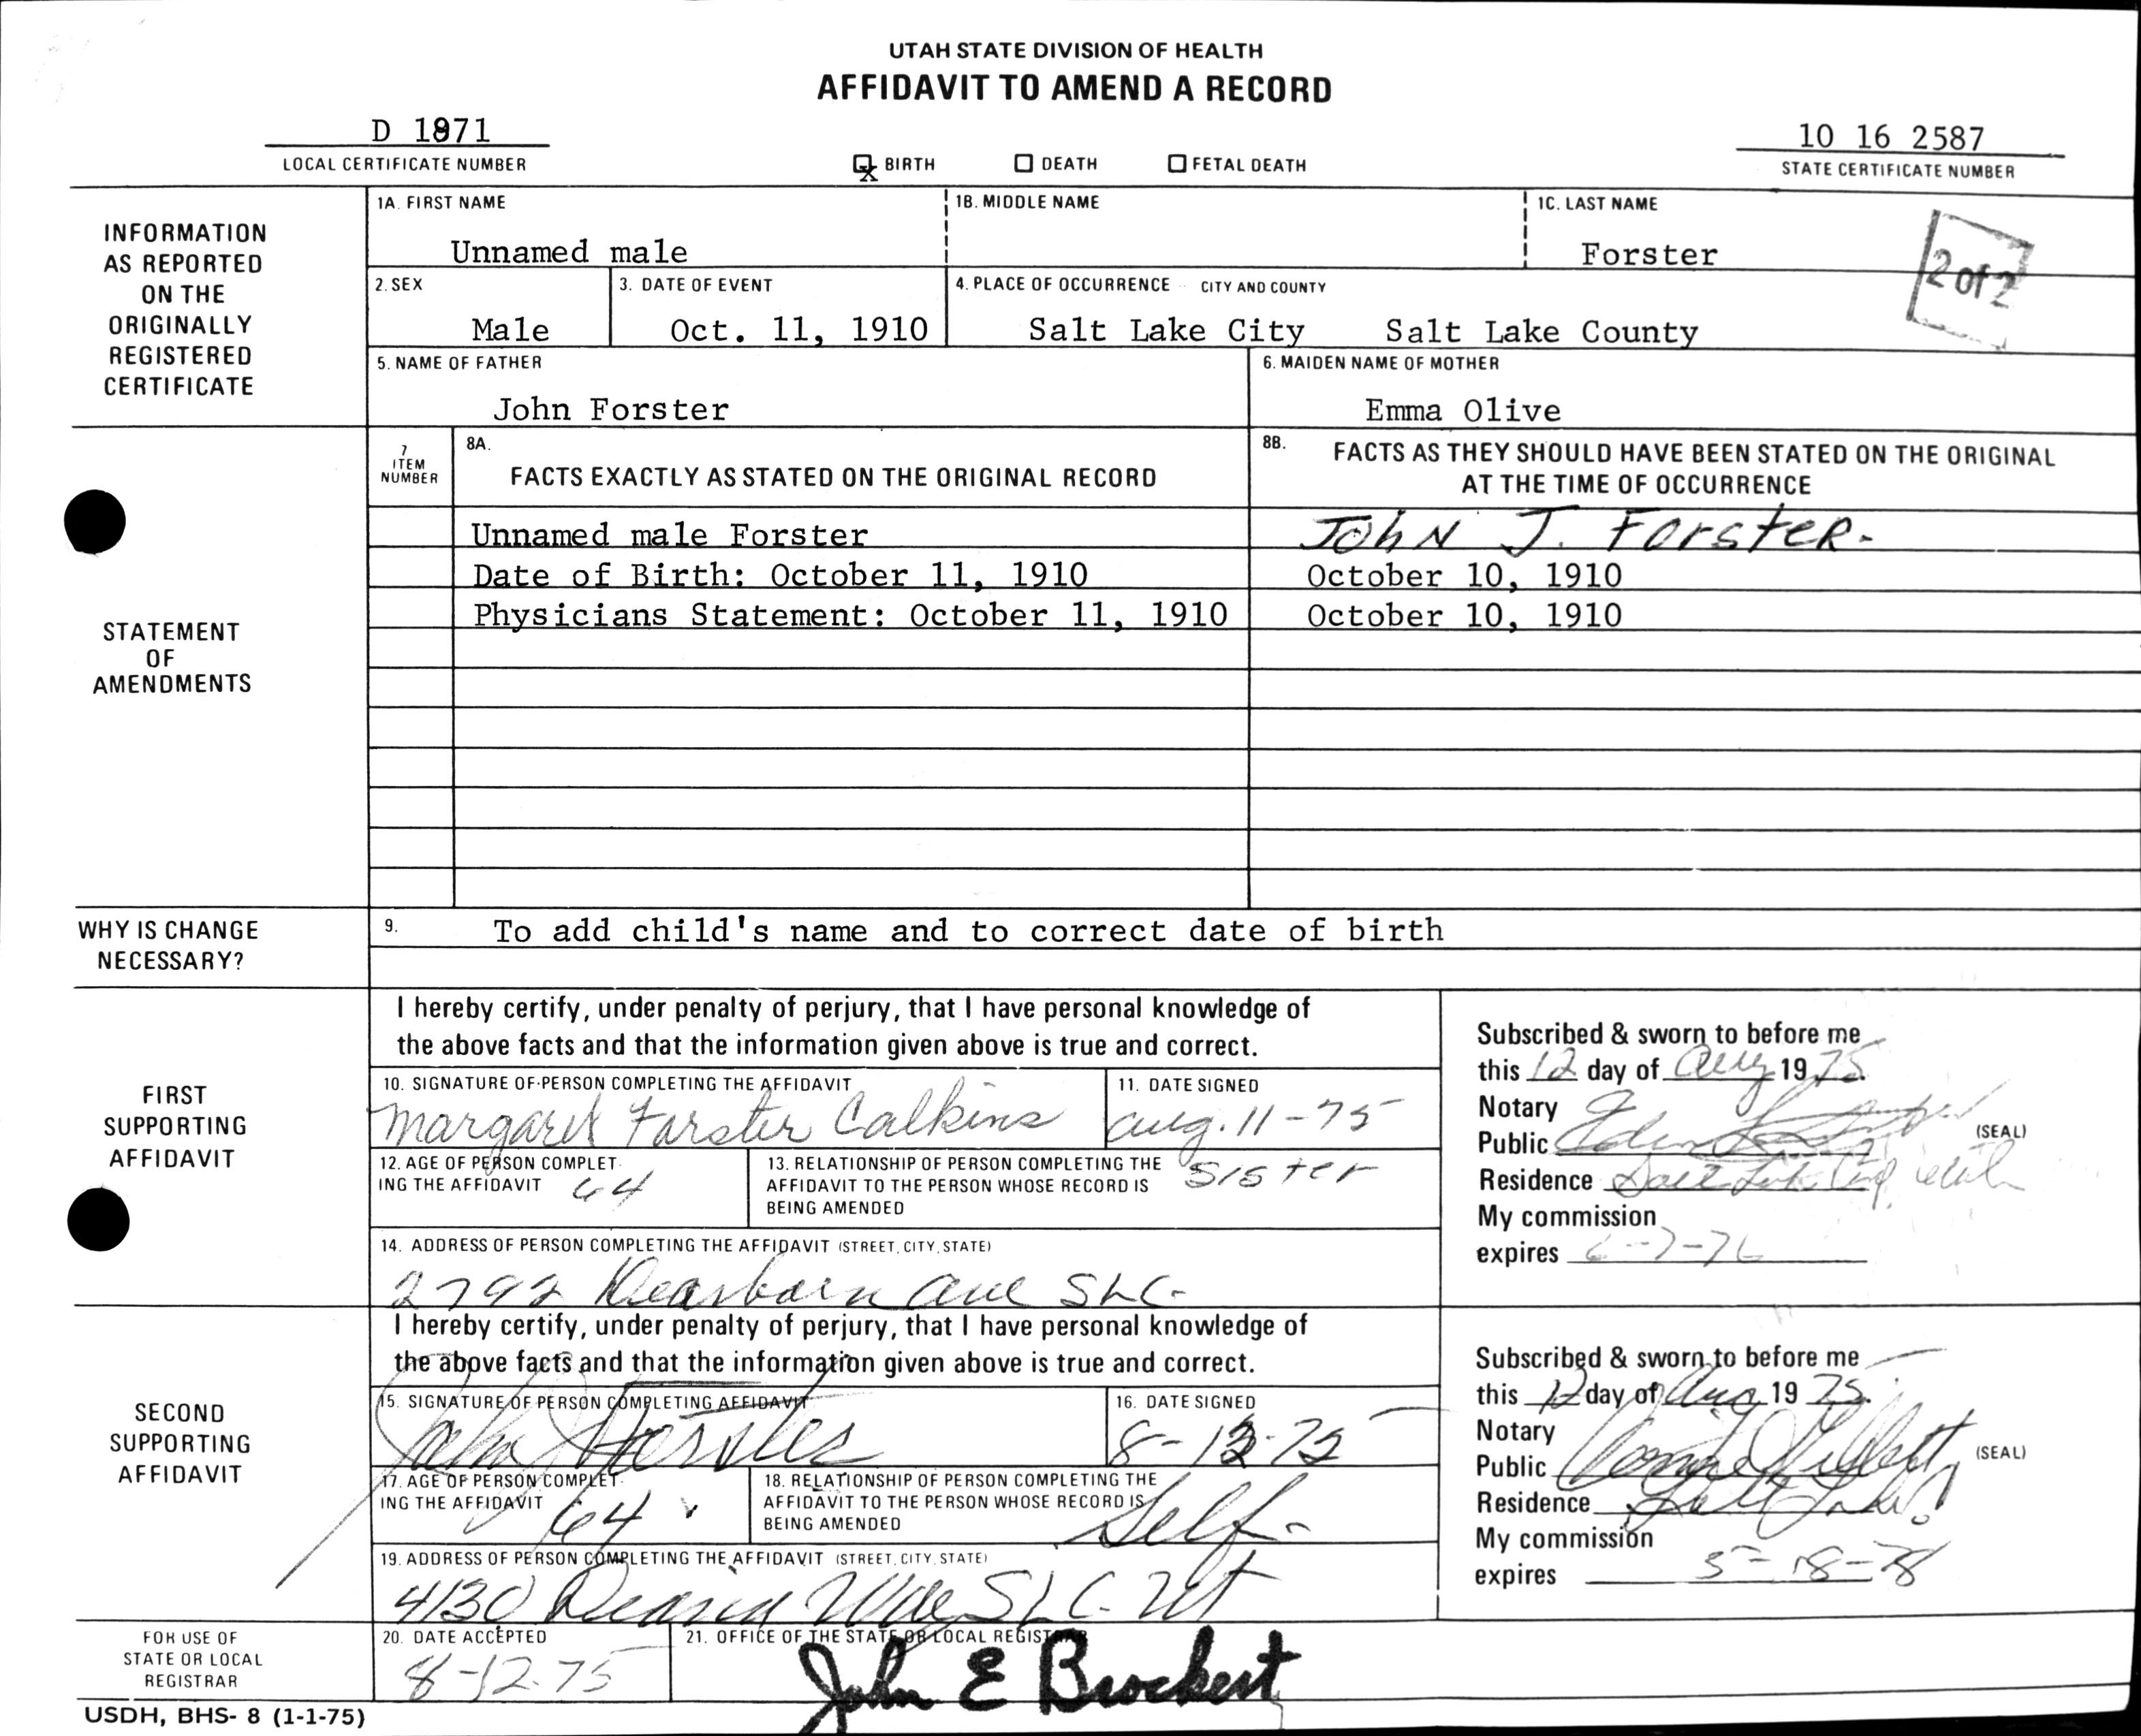 UTAH STATE DIVISION OF HEALTH
AFFIDAVIT TO AMEND A RECORD
D 1871
LOCAL CERTIFICATE NUMBER
X BIRTH
DEATH
FETAL DEATH
10 16 2587
STATE CERTIFICATE NUMBER
INFORMATION
AS REPORTED
ON THE
ORIGINALLY
REGISTERED
CERTIFICATE
1A. FIRST NAME
Unnamed male
1B. MIDDLE NAME
1C. LAST NAME
Forster
2 of 2
2. SEX
Male
3. DATE OF EVENT
Oct. 11, 1910
4. PLACE OF OCCURRENCE CITY AND COUNTY
Salt Lake City Salt Lake County
5. NAME OF FATHER
John Forster
6. MAIDEN NAME OF MOTHER
Emma Olive
STATEMENT
OF
AMENDMENTS
7
ITEM
NUMBER
8A.
FACTS EXACTLY AS STATED ON THE ORIGINAL RECORD
8B. FACTS AS THEY SHOULD HAVE BEEN STATED ON THE ORIGINAL
AT THE TIME OF OCCURRENCE
Unnamed male Forster
JOHN J. FORSTER.
Date of Birth: October 11, 1910
October 10, 1910
Physicians Statement: October 11, 1910
October 10, 1910
WHY IS CHANGE
NECESSARY?
9. To add child's name and to correct date of birth
FIRST
SUPPORTING
AFFIDAVIT
I hereby certify, under penalty of perjury, that I have personal knowledge of
the above facts and that the information given above is true and correct.
10. SIGNATURE OF PERSON COMPLETING THE AFFIDAVIT
Margaret Forster Calkins
11. DATE SIGNED
Aug. 11-75
12. AGE OF PERSON COMPLET-
ING THE AFFIDAVIT 64
13. RELATIONSHIP OF PERSON COMPLETING THE
AFFIDAVIT TO THE PERSON WHOSE RECORD IS
BEING AMENDED
Sister
14. ADDRESS OF PERSON COMPLETING THE AFFIDAVIT (STREET, CITY, STATE)
2792 Dearborn Ave SLC.
Subscribed & sworn to before me
this 12 day of Aug 1975.
Notary
Public
(SEAL)
Residence Salt Lake City Utah
My commission
expires 6-7-76
SECOND
SUPPORTING
AFFIDAVIT
I hereby certify, under penalty of perjury, that I have personal knowledge of
the above facts and that the information given above is true and correct.
15. SIGNATURE OF PERSON COMPLETING AFFIDAVIT
John J Forster
16. DATE SIGNED
8-12-75
17. AGE OF PERSON COMPLET-
ING THE AFFIDAVIT 64
18. RELATIONSHIP OF PERSON COMPLETING THE
AFFIDAVIT TO THE PERSON WHOSE RECORD IS
BEING AMENDED
Self-
19. ADDRESS OF PERSON COMPLETING THE AFFIDAVIT (STREET, CITY, STATE)
4130 SLC. Ut
Subscribed & sworn to before me
this 12 day of Aug 1975.
Notary
Public
(SEAL)
Residence Salt Lake
My commission
expires 5-18-78
FOR USE OF
STATE OR LOCAL
REGISTRAR
20. DATE ACCEPTED
8-12-75
21. OFFICE OF THE STATE OR LOCAL REGISTRAR
John E Brockert
USDH, BHS- 8 (1-1-75)